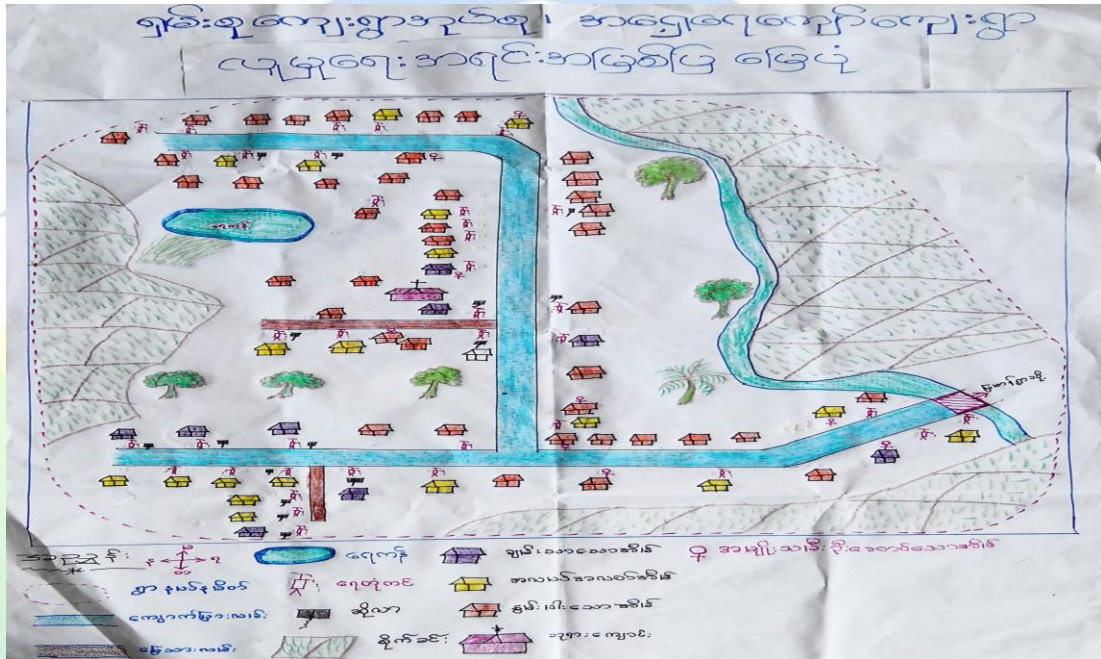 ရှမ်းစုကျေးရွာအုပ်စု၊ အငှေ့ရေကျော်ကျေးရွာ
လူမှုရေးအရင်းအမြစ်ပြ မြေပုံ
ရေကန်
မြောက်ရွာသို့
ရေကန်
ချမ်းသာသောအိမ်
အမျိုးသမီးဦးဆောင်သောအိမ်
ရွာနယ်နမိတ်
ရေတုံကင်
အလယ်အလတ်အိမ်
ကျောက်ခြားလမ်း
ဆိုလာ
နွမ်းပါးသောအိမ်
မြေသားလမ်း
စိုက်ခင်း
ဘုရားကျောင်း